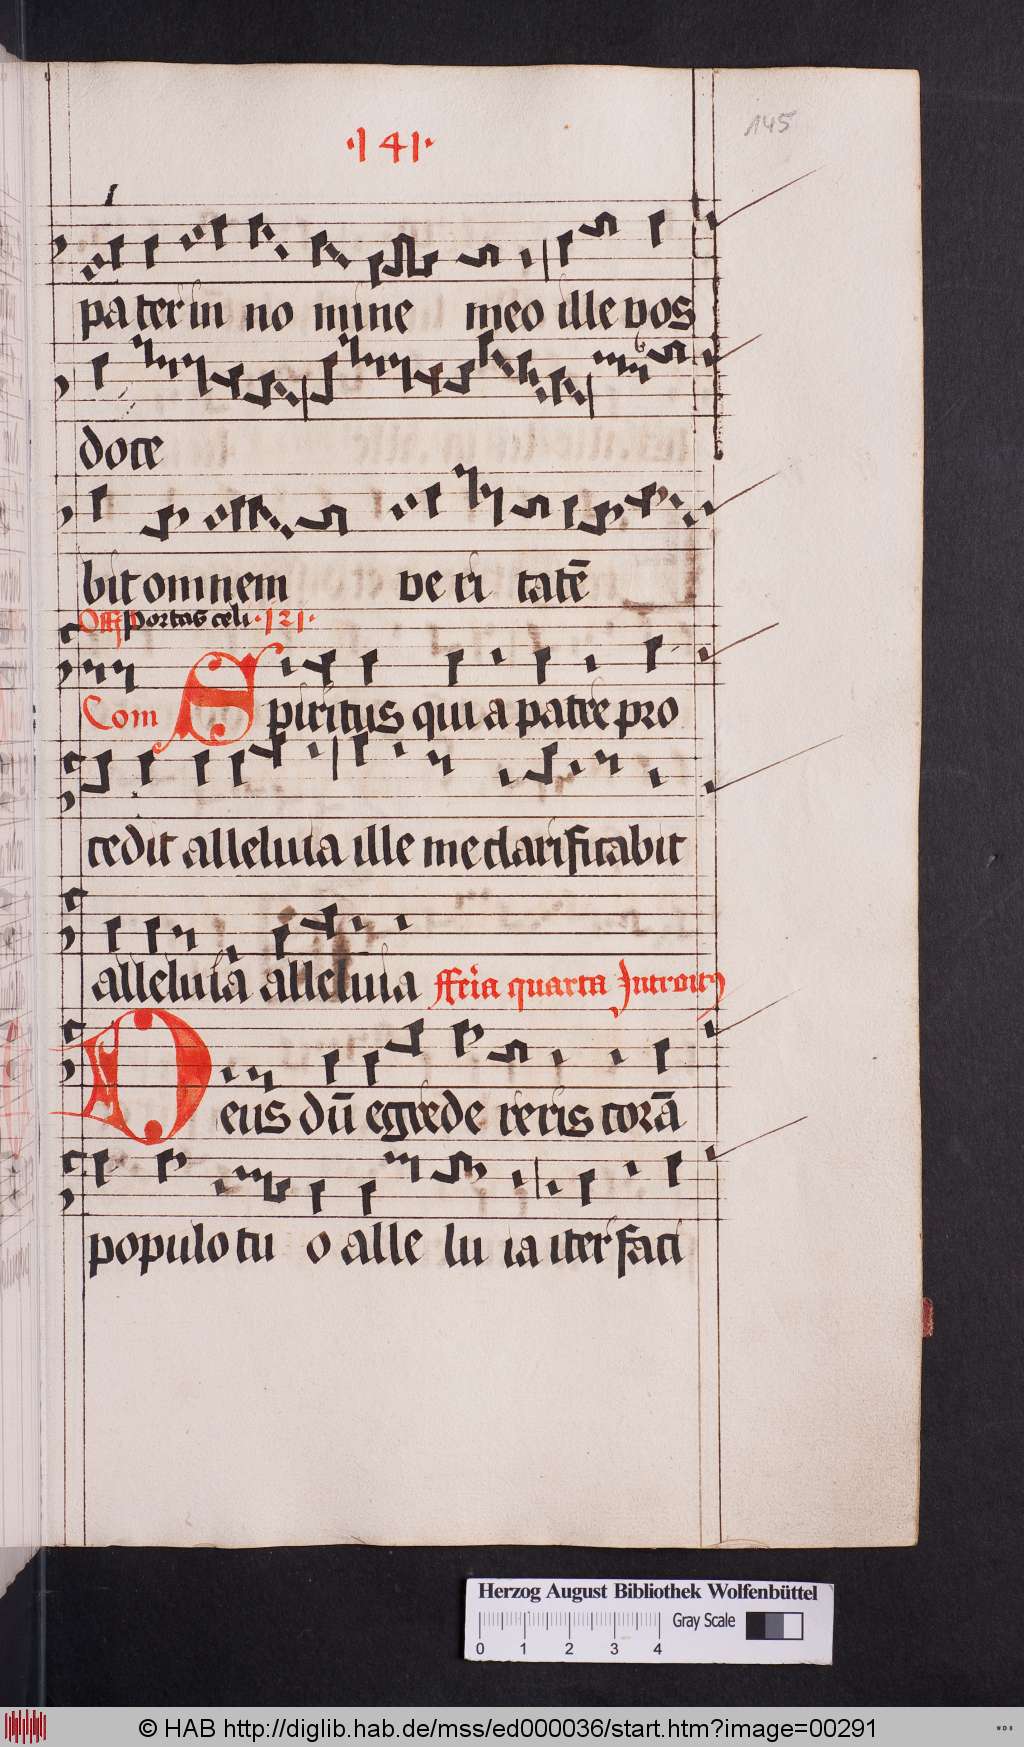 ·141·
145
pater in no mine meo ille vos
doce
bit omnem ve ri tatē
Off Portas celi ·121·
Com Spiritus qui a patre pro
cedit alleluia ille me clarificabit
alleluia alleluia fferia quarta Introitꝰ
Deus dū egrede reris corā
populo tu o alle lu ia iter faci
Herzog August Bibliothek Wolfenbüttel
0 1 2 3 4 Gray Scale
© HAB http://diglib.hab.de/mss/ed000036/start.htm?image=00291